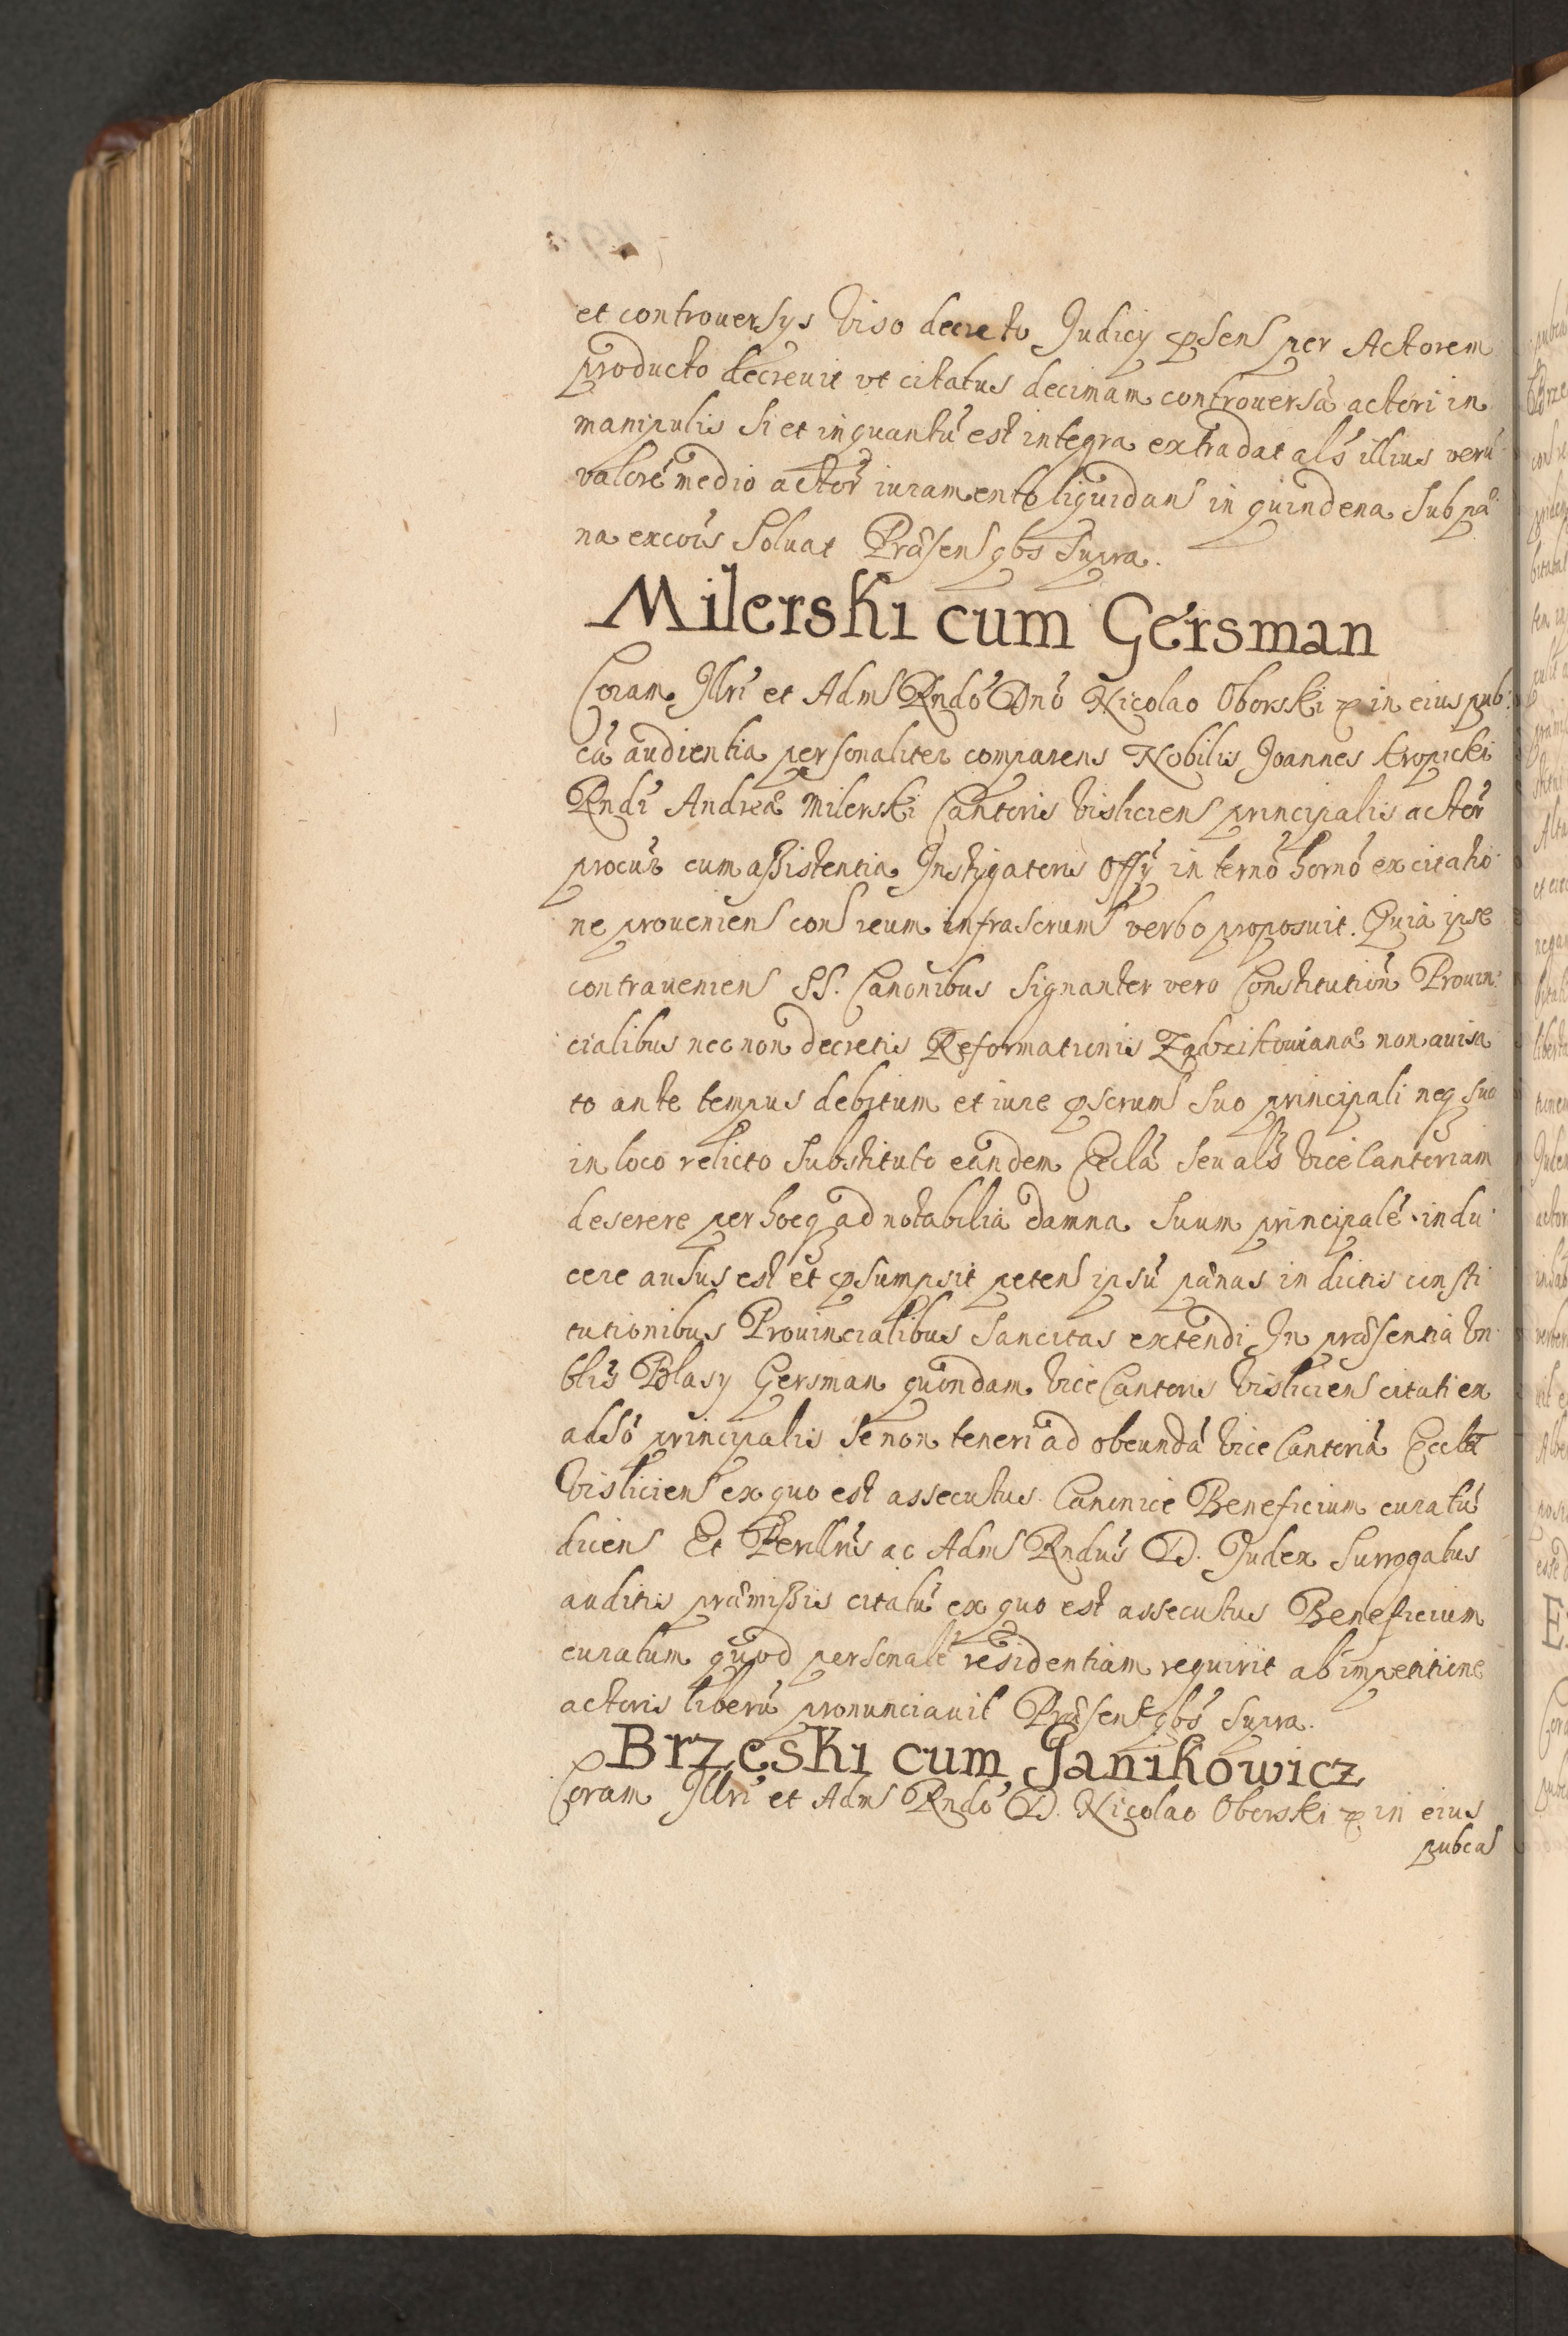 et controuersys viso decreto Judicy psens per Actorem
producto decreuit vt citatus decimam controuersã actori in
manipulis si et inquantũ est integra extradat als illius verũ
valorẽ medio actor iuramento liquidans in quindena sub pæ
na excois soluat Præsen qbs supra.
Milerski cum Gersman
Coram Illri et Adm Rndo Dno Nicolao Oborski & in eius pub:
cã audientia personaliter comparens Nobilis Joannes kropicki
Rndi Andreæ Milerski Cantoris Visliciens principalis actor
procur cum assistentia Instigatoris Offy in termo horno ex citatio:
ne proueniens cons reum infrascrum verbo proposuit. Quia ipse
contraueniens SS. Canonibus signanter vero Constitution Prouin:
cialibus nec non decretis Reformationis Zadzikowianæ non auisa
to ante tempus debitum et iure pscrum suo principali neq suo
in loco relicto substituto eandem Ecclã seu als vice Cantoriam
deserere per hocq ad notabilia damna suum principalẽ indu:
cere ausus est et psumpsit petens ipsũ pænas in dictis consti
tutionibus Prouincialibus sancitas extendi In præsentia Vn:
blis Blasy Gersman quondam vice Cantoris Visliciens citati ex
adso principalis se non teneri ad obeundã vice Cantoriã Ecclæ
Visliciens ex quo est assecutus Canonice Beneficium curatũ
dicens Et Perillris ac Adm Rndus D. Judex Surrogatus
auditis præmissis citatũ ex quo est assecutus Beneficium
curatum quod personalẽ residentiam requirit ab impetitione
actoris liberũ pronunciauit Præsent qbs supra.
Brzeski cum Janikowicz
Coram Illri et Adm Rndo D. Nicolao Oborski & in eius
pubca